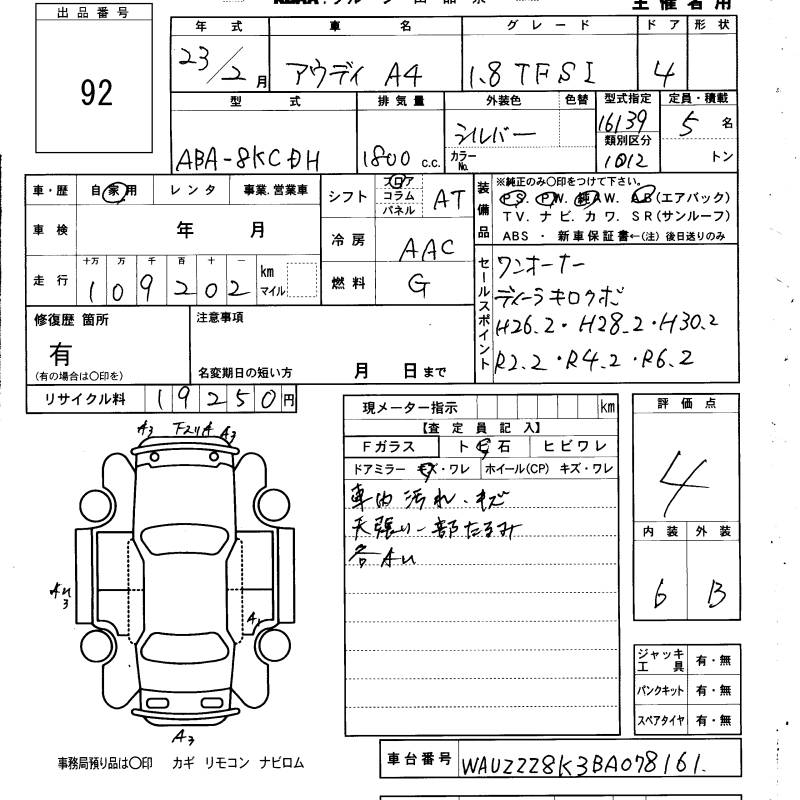 出品番号
92
主催者用
年式 車名 グレード ドア 形状
23/2月 アウディ A4 1.8 TFSI 4
型式 排気量 外装色 色替 型式指定 定員・積載
ABA-8KCDH 1800 c.c. シルバー 16139 5名
カラーNo. 類別区分 1012 トン
車・歴 自家用 レンタ 事業.営業車
シフト フロア コラム パネル AT
装備品 ※純正のみ〇印をつけて下さい。
PS. PW. 純AW. AB(エアバック)
TV. ナビ. カワ. SR(サンルーフ)
ABS ・ 新車保証書←(注) 後日送りのみ
車検 年 月
冷房 AAC
走行 十万 万 千 百 十 一
109202 km マイル
燃料 G
セールスポイント ワンオーナー
ディーラキロクボ
H26.2・H28.2・H30.2
R2.2・R4.2・R6.2
修復歴 箇所
有
(有の場合は〇印を)
注意事項
名変期日の短い方 月 日まで
リサイクル料 19250円
現メーター指示 km
【査定員記入】
Fガラス トビ石 ヒビワレ
ドアミラー キズ・ワレ ホイール(CP) キズ・ワレ
車内汚れ.キズ
天張り一部たるみ
各AU
評価点
4
内装 外装
6 B
A3 A3
A3
ジャッキ工具 有・無
パンクキット 有・無
スペアタイヤ 有・無
事務局預り品は〇印 カギ リモコン ナビロム
車台番号 WAUZZZ8K3BA078161.